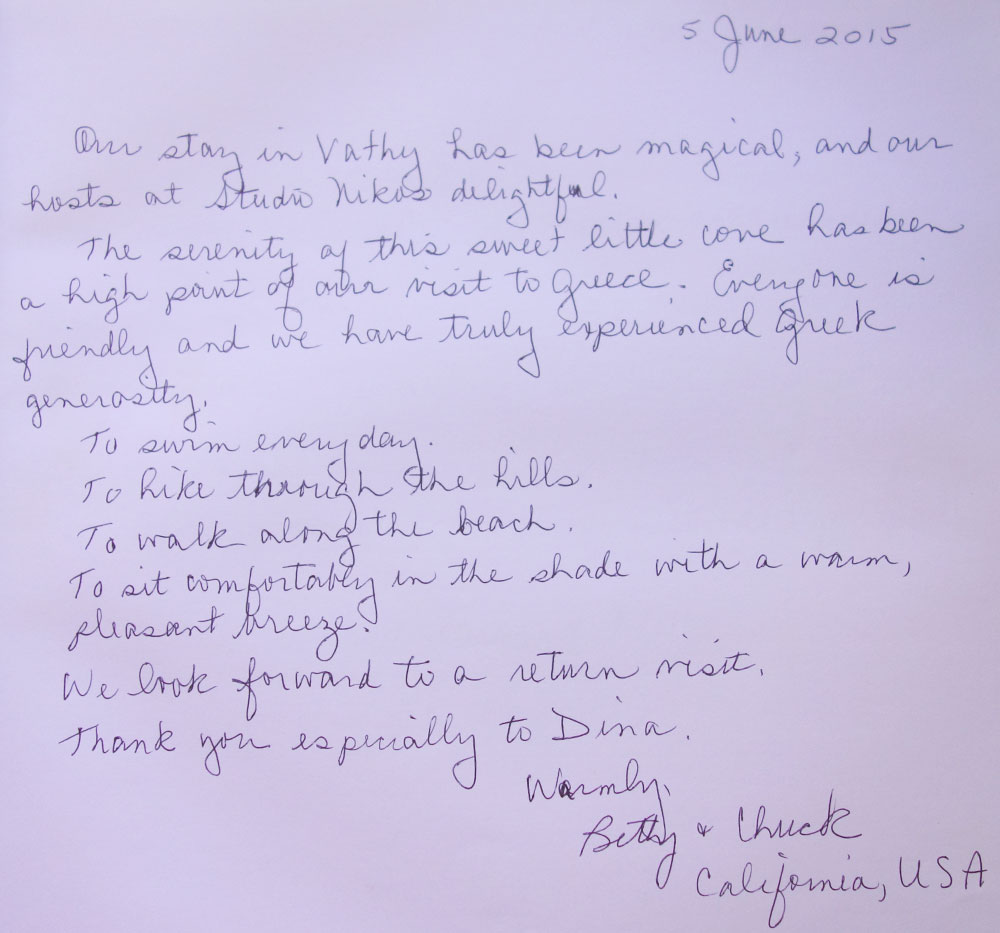 5 June 2015
Our stay in Vathy has been magical, and our
hosts at Studio Nikos delightful.
The serenity of this sweet little cove has been
a high point of our visit to Greece. Everyone is
friendly and we have truly experienced Greek
generosity.
To swim every day.
To hike through the hills.
To walk along the beach.
To sit comfortably in the shade with a warm,
pleasant breeze.
We look forward to a return visit.
Thank you especially to Dina.
Warmly,
Betty & Chuck
California, USA